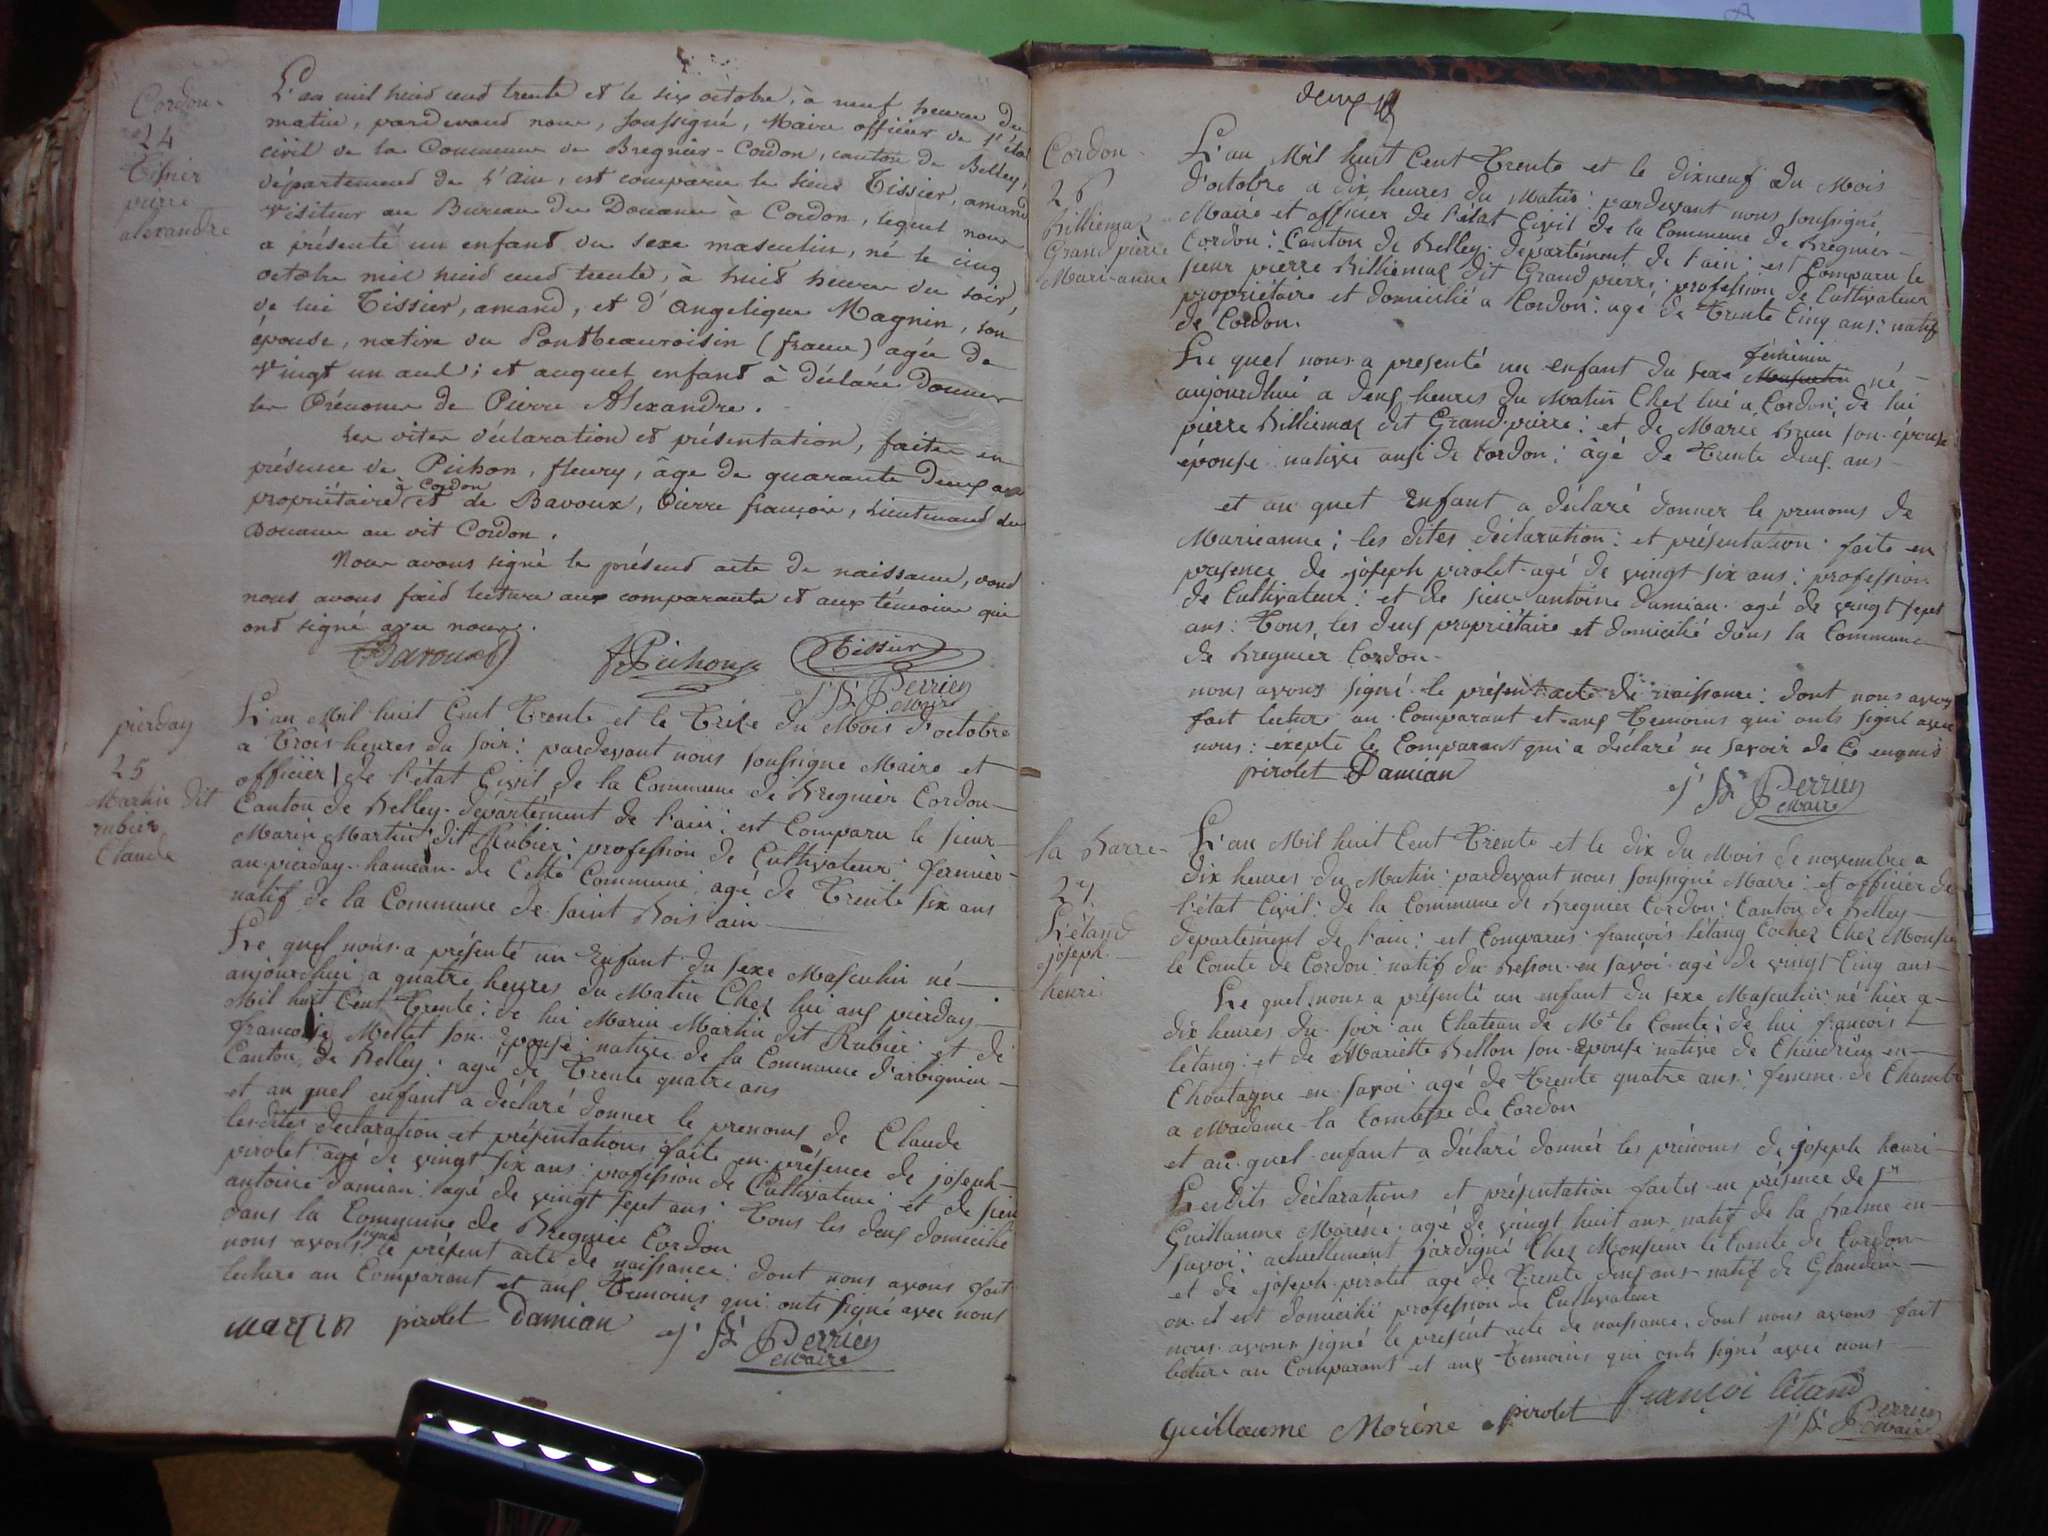 Cordon
24
Tissier
pierre
alexandre
L'an mil huid cend trente et le six octobre, à neuf heure du
matin, pardevand nous, soussigné, Maire officier de l'état
civil de la Commune de Bregnier-Cordon, canton de Belley,
département de l'ain, est comparu le sieur Tissier, amand
visiteur au Bureau des Douanes à Cordon, lequel nous
a présenté un enfant du sexe masculin, né le cinq
octobre mil huid cend trente, à huid heures du soir,
de lui Tissier, amand, et d'angelique Magnin, son
épouse, native du Pontbeauvoisin (france) agée de
vingt un ans; et auquel enfant à déclaré donner
les Prénoms de Pierre Alexandre.
Les dites déclaration et présentation, faites en
présence de Pichon, fleury, âge de quarante deux ans
propriétaire à Cordon et de Bavoux, Pierre françois, Lieutenant des
Douanes au dit Cordon.
Nous avons signé le présend acte de naissance, dond
nous avons faid lecture aux comparants et aux témoins qui
ond signé avec nous.
Bavoux fPichon Tissier
J. Bte Perrien
Maire
pierday
25
Martin dit
rubier
Claude
L'an Mil huit Cent Trente et le Treize du Mois d'octobre
a Trois heures du soir: pardevant nous soussigné Maire et
officier de l'état Civil de la Commune de Bregnier Cordon
Canton de Belley. département de l'ain: est Comparu le sieur
Marin Martin dit Rubier: profession de Cultivateur: fermier
au pierday hameau de Cette Commune: agé de Trente six ans
natif de la Commune de saint Bois ain
Le quel nous a présenté un Enfant du sexe Masculin né
aujourdhui a quatre heures du Matin Chez lui aux pierday
Mil huit Cent Trente: de lui Marin Martin dit Rubier et de
francoise Mellet son Epouse: native de la Commune d'arbignieu
Canton de Belley: agé de Trente quatre ans
et au quel enfant a déclaré donner le prenoms de Claude
les dites declaration et présentations faite en présence de joseph
pirolet agé de vingt six ans: profession de Cultivateur: et de sieur
antoine damian: agé de vingt sept ans: Tous les deux domicilié
dans la Commune de Bregnier Cordon
nous avons signé le présent acte de naissance: dont nous avons fait
lecture au Comparant et aux Temoins qui onts signé avec nous
martin pirolet Damian
J. Bte Perrien
Maire
deux
Cordon
26
Billiemaz
Grand pierre
Marianne
L'an Mil huit Cent Trente et le dixneuf du Mois
d'octobre a dix heures du Matin: pardevant nous soussigné
Maire et officier de l'état Civil de la Commune de Bregnier
Cordon: Canton de Belley: département de l'ain: est Comparu le
sieur pierre Billiemaz dit Grand pierre: profession de Cultivateur
propriétaire et domicilié a Cordon: agé de Trente Cinq ans: natif
de Cordon.
Le quel nous a presenté un enfant du sexe Masculin féminin né
aujourdhui a deux heures du Matin Chez lui a Cordon: de lui
pierre Billiemaz dit Grand pierre: et de Marie Brun son épouse
épouse native ausi de Cordon: âgé de Trente deux ans
et au quel Enfant a déclaré donner le prenoms de
Marieanne; les dites déclaration: et présentation: faite en
presence de joseph pirolet agé de vingt six ans: profession
de Cultivateur: et de sieur antoine damian agé de vingt sept
ans: Tous les deux propriétaire et domicilié dans la Commune
de Bregnier Cordon
nous avons signé le présent acte de naissance: dont nous avons
fait lecture au Comparant et aux Temoins qui onts signé avec
nous: éxépté le Comparant qui a déclaré ne savoir de Ce enquis
pirolet Damian
J. Bte Perrien
Maire
la Barre
27
Létand
joseph
henri
L'an Mil huit Cent Trente et le dix du Mois de novembre a
dix heures du Matin: pardevant nous soussigné Maire: et officier de
l'état Civil: de la Commune de Bregnier Cordon: Canton de Belley
département de l'ain: est Comparus françois létang Cocher Chez Monsieur
le Comte de Cordon: natif du Besson en savoi agé de vingt Cinq ans
Le quel nous a présenté un enfant du sexe Masculin: né hier a
dix heures du soir au Chateau de Mr le Comte: de lui françois
létang: et de Mariette Bellon son Epouse native de Chindrieux en
Choutagne en savoi: agé de Trente quatre ans: femme de Chambre
a Madame la Comtesse de Cordon
et au quel enfant a déclaré donner les prénoms de joseph henri
Lesdits déclarations et présentation faites en présence de sr
Guillaume Moréne agé de vingt huit ans natif de la Balme en
savoi: actuellement jardigné Chez Monsieur le Comte de Cordon
et de joseph pirolet agé de Trente deux ans natif de Glandieu
ou il est domicilié profession de Cultivateur
nous avons signé le présent acte de naissance, dont nous avons fait
lecture au Comparant et aux Temoins qui onts signé avec nous
guillaume Moréne pirolet françoi létand
J. Bte Perrien
Maire